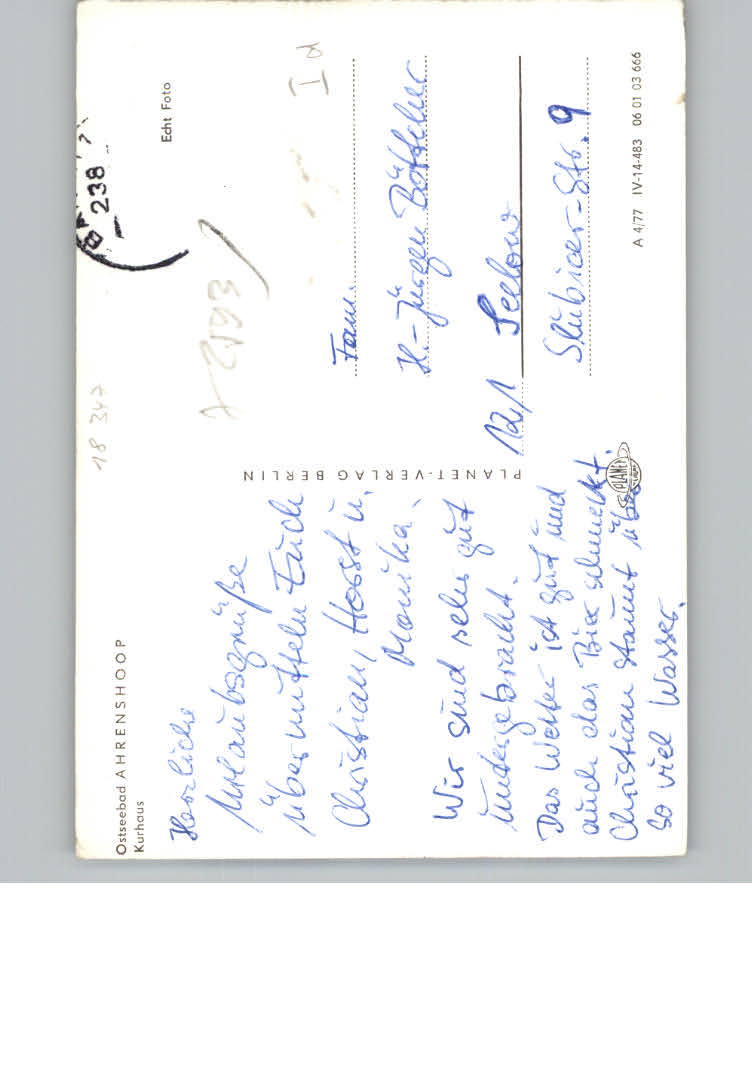 Ostseebad AHRENSHOOP
Kurhaus
Herzliche
Urlaubsgrüße
übermitteln Euch
Christian, Horst u.
Monika.
Wir sind sehr gut
untergebracht.
Das Wetter ist gut und
auch das Bier schmeckt.
Christian staunt über
so viel Wasser.
PLANET-VERLAG BERLIN
PLANET
238
Echt Foto
18 347
Id
Fam.
H.-Jürgen Böttcher
121 Seelow
Slubicer-Str. 9
A 4/77 IV-14-483 06 01 03 666